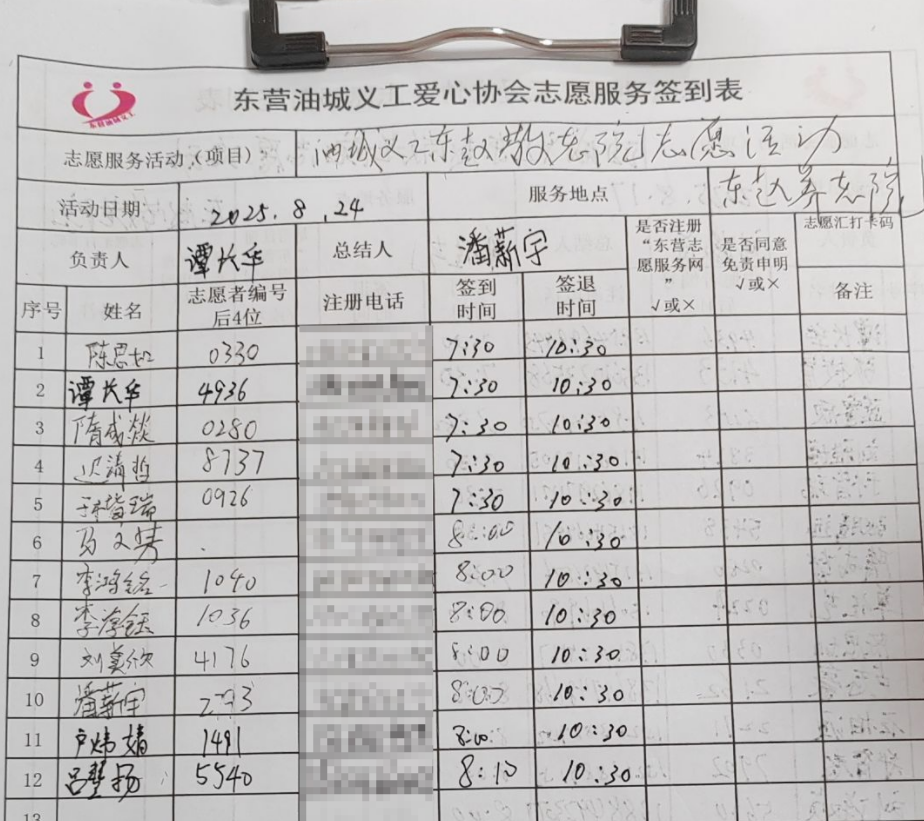 东营油城义工爱心协会志愿服务签到表
东营油城义工
志愿服务活动(项目) 油城义工东赵敬老院志愿活动
活动日期 2025.8.24 服务地点 东赵养老院
负责人 谭长华 总结人 潘薪宇 是否注册“东营志愿服务网”√或× 是否同意免责申明√或× 志愿汇打卡码
序号 姓名 志愿者编号后4位 注册电话 签到时间 签退时间 备注
1 陈思如 0330 7:30 10:30
2 谭长华 4936 7:30 10:30
3 隋成燚 0280 7:30 10:30
4 迟清哲 8737 7:30 10:30
5 瑞 0926 7:30 10:30
6 马文 8:00 10:30
7 李鸿铭 1040 8:00 10:30
8 李 钰 1036 8:00 10:30
9 刘 欣 4176 8:00 10:30
10 潘薪宇 8:00 10:30
11 卢炜婧 1491 8:00 10:30
12 吕 扬 5540 8:10 10:30
13